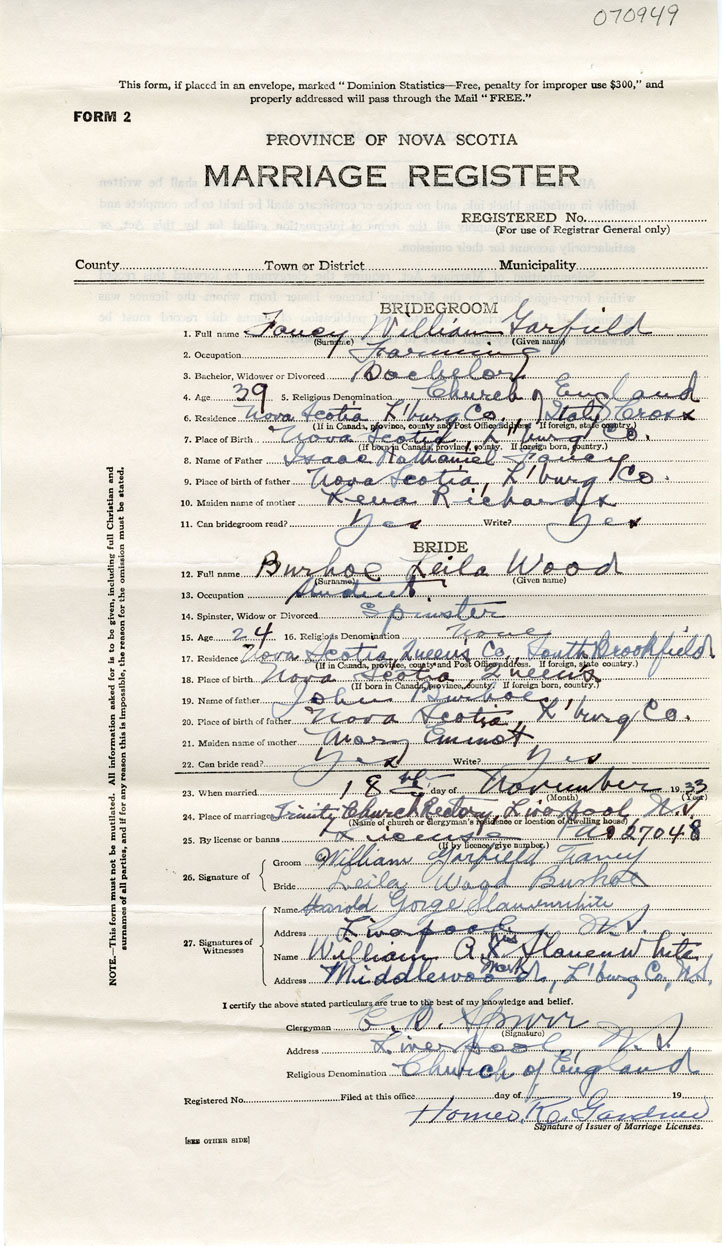 070949
This form, if placed in an envelope, marked "Dominion Statistics—Free, penalty for improper use $300," and
properly addressed will pass through the Mail "FREE."
FORM 2
PROVINCE OF NOVA SCOTIA
MARRIAGE REGISTER
REGISTERED No.
(For use of Registrar General only)
County Town or District Municipality
BRIDEGROOM
1. Full name Fancy William Garfield
(Surname) (Given name)
2. Occupation Farming
3. Bachelor, Widower or Divorced Bachelor
4. Age 39 5. Religious Denomination Church of England
6. Residence Nova Scotia, L'burg Co.
(If in Canada, province, county and Post Office address. If foreign, state country.)
7. Place of Birth Nova Scotia, L'burg Co.
(If born in Canada, province, county. If foreign born, country.)
8. Name of Father Isaac Nathaniel Fancy
9. Place of birth of father Nova Scotia, L'burg Co.
10. Maiden name of mother Lena Richards
11. Can bridegroom read? Yes Write? Yes
BRIDE
12. Full name Bushoe Leila Wood
(Surname) (Given name)
13. Occupation Student
14. Spinster, Widow or Divorced Spinster
15. Age 24 16. Religious Denomination None
17. Residence Nova Scotia, Queens Co., South Brookfield
(If in Canada, province, county and Post Office address. If foreign, state country.)
18. Place of birth Nova Scotia, Queens
(If born in Canada, province, county. If foreign born, country.)
19. Name of father John Bushoe
20. Place of birth of father Nova Scotia, L'burg Co.
21. Maiden name of mother Mary Emmot
22. Can bride read? Yes Write? Yes
23. When married 18th day of November 1933
(Month) (Year)
24. Place of marriage Trinity Church Rectory, Liverpool N.S.
(Name of church or clergyman's residence or location of dwelling house)
25. By license or banns License No 27048
(If by licence, give number.)
26. Signature of
Groom William Garfield Fancy
Bride Leila Wood Bushoe
27. Signatures of
Witnesses
Name Harold Gorge Slauenwhite
Address Liverpool, N.S.
Name William A. & Mrs Slauenwhite
Address Middlewood, L'burg Co., N.S.
I certify the above stated particulars are true to the best of my knowledge and belief.
Clergyman
(Signature)
Address Liverpool, N.S.
Religious Denomination Church of England
Registered No. Filed at this office day of 19
Homer K. Gardner
Signature of Issuer of Marriage Licenses.
[SEE OTHER SIDE]
NOTE.—This form must not be mutilated. All information asked for is to be given, including full Christian and
surnames of all parties, and if for any reason this is impossible, the reason for the omission must be stated.